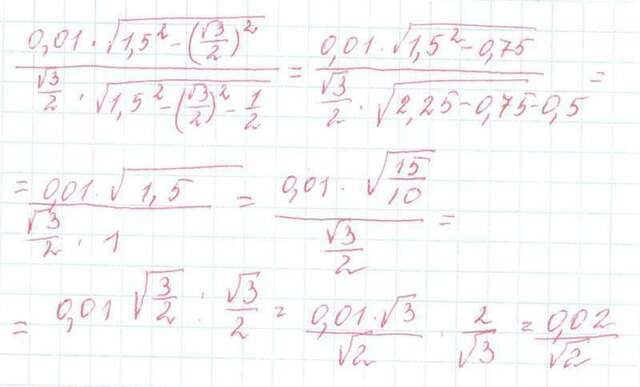 (0,01 · √(1,5² − (√3/2)²)) / (√3/2 · √(1,5² − (√3/2)² − 1/2)) = (0,01 · √(1,5² − 0,75)) / (√3/2 · √(2,25 − 0,75 − 0,5)) =
= (0,01 · √(1,5)) / (√3/2 · 1) = (0,01 · √(15/10)) / (√3/2) =
= 0,01 √(3/2) : √3/2 = (0,01 · √3)/√2 · 2/√3 = 0,02/√2